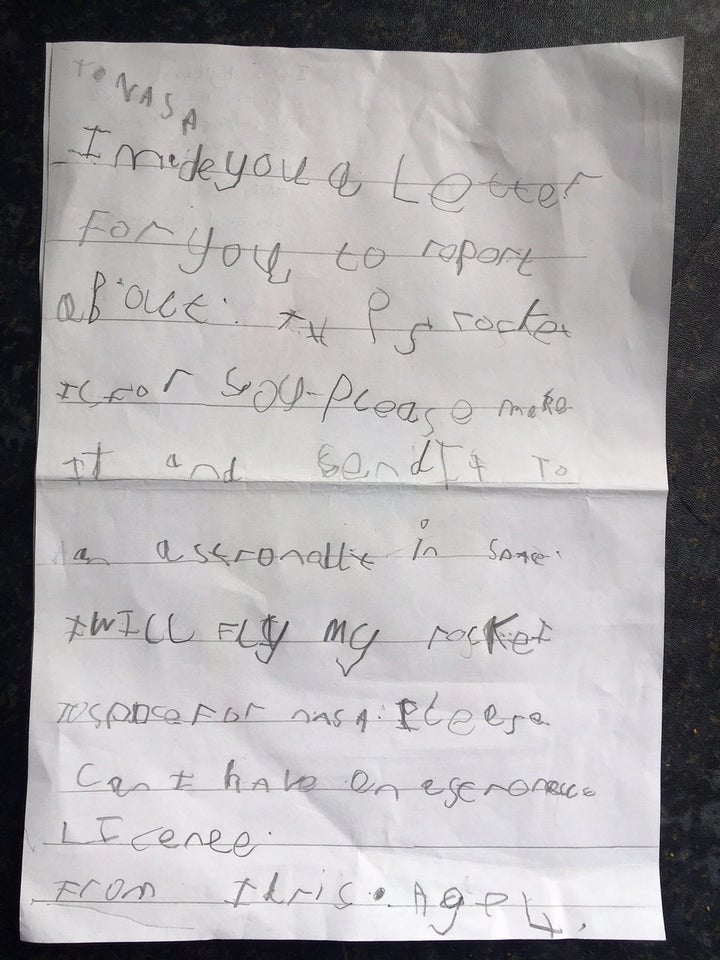 To NASA
I made you a Letter
For you to roport
about. It Is rocket
It For you. Please make
It and send It to
an astronatt in Spase.
I WILL FLIy My rocket
to spase For nasa. Pleese
Can I have an
LIcenee.
From Idris. Age 4.